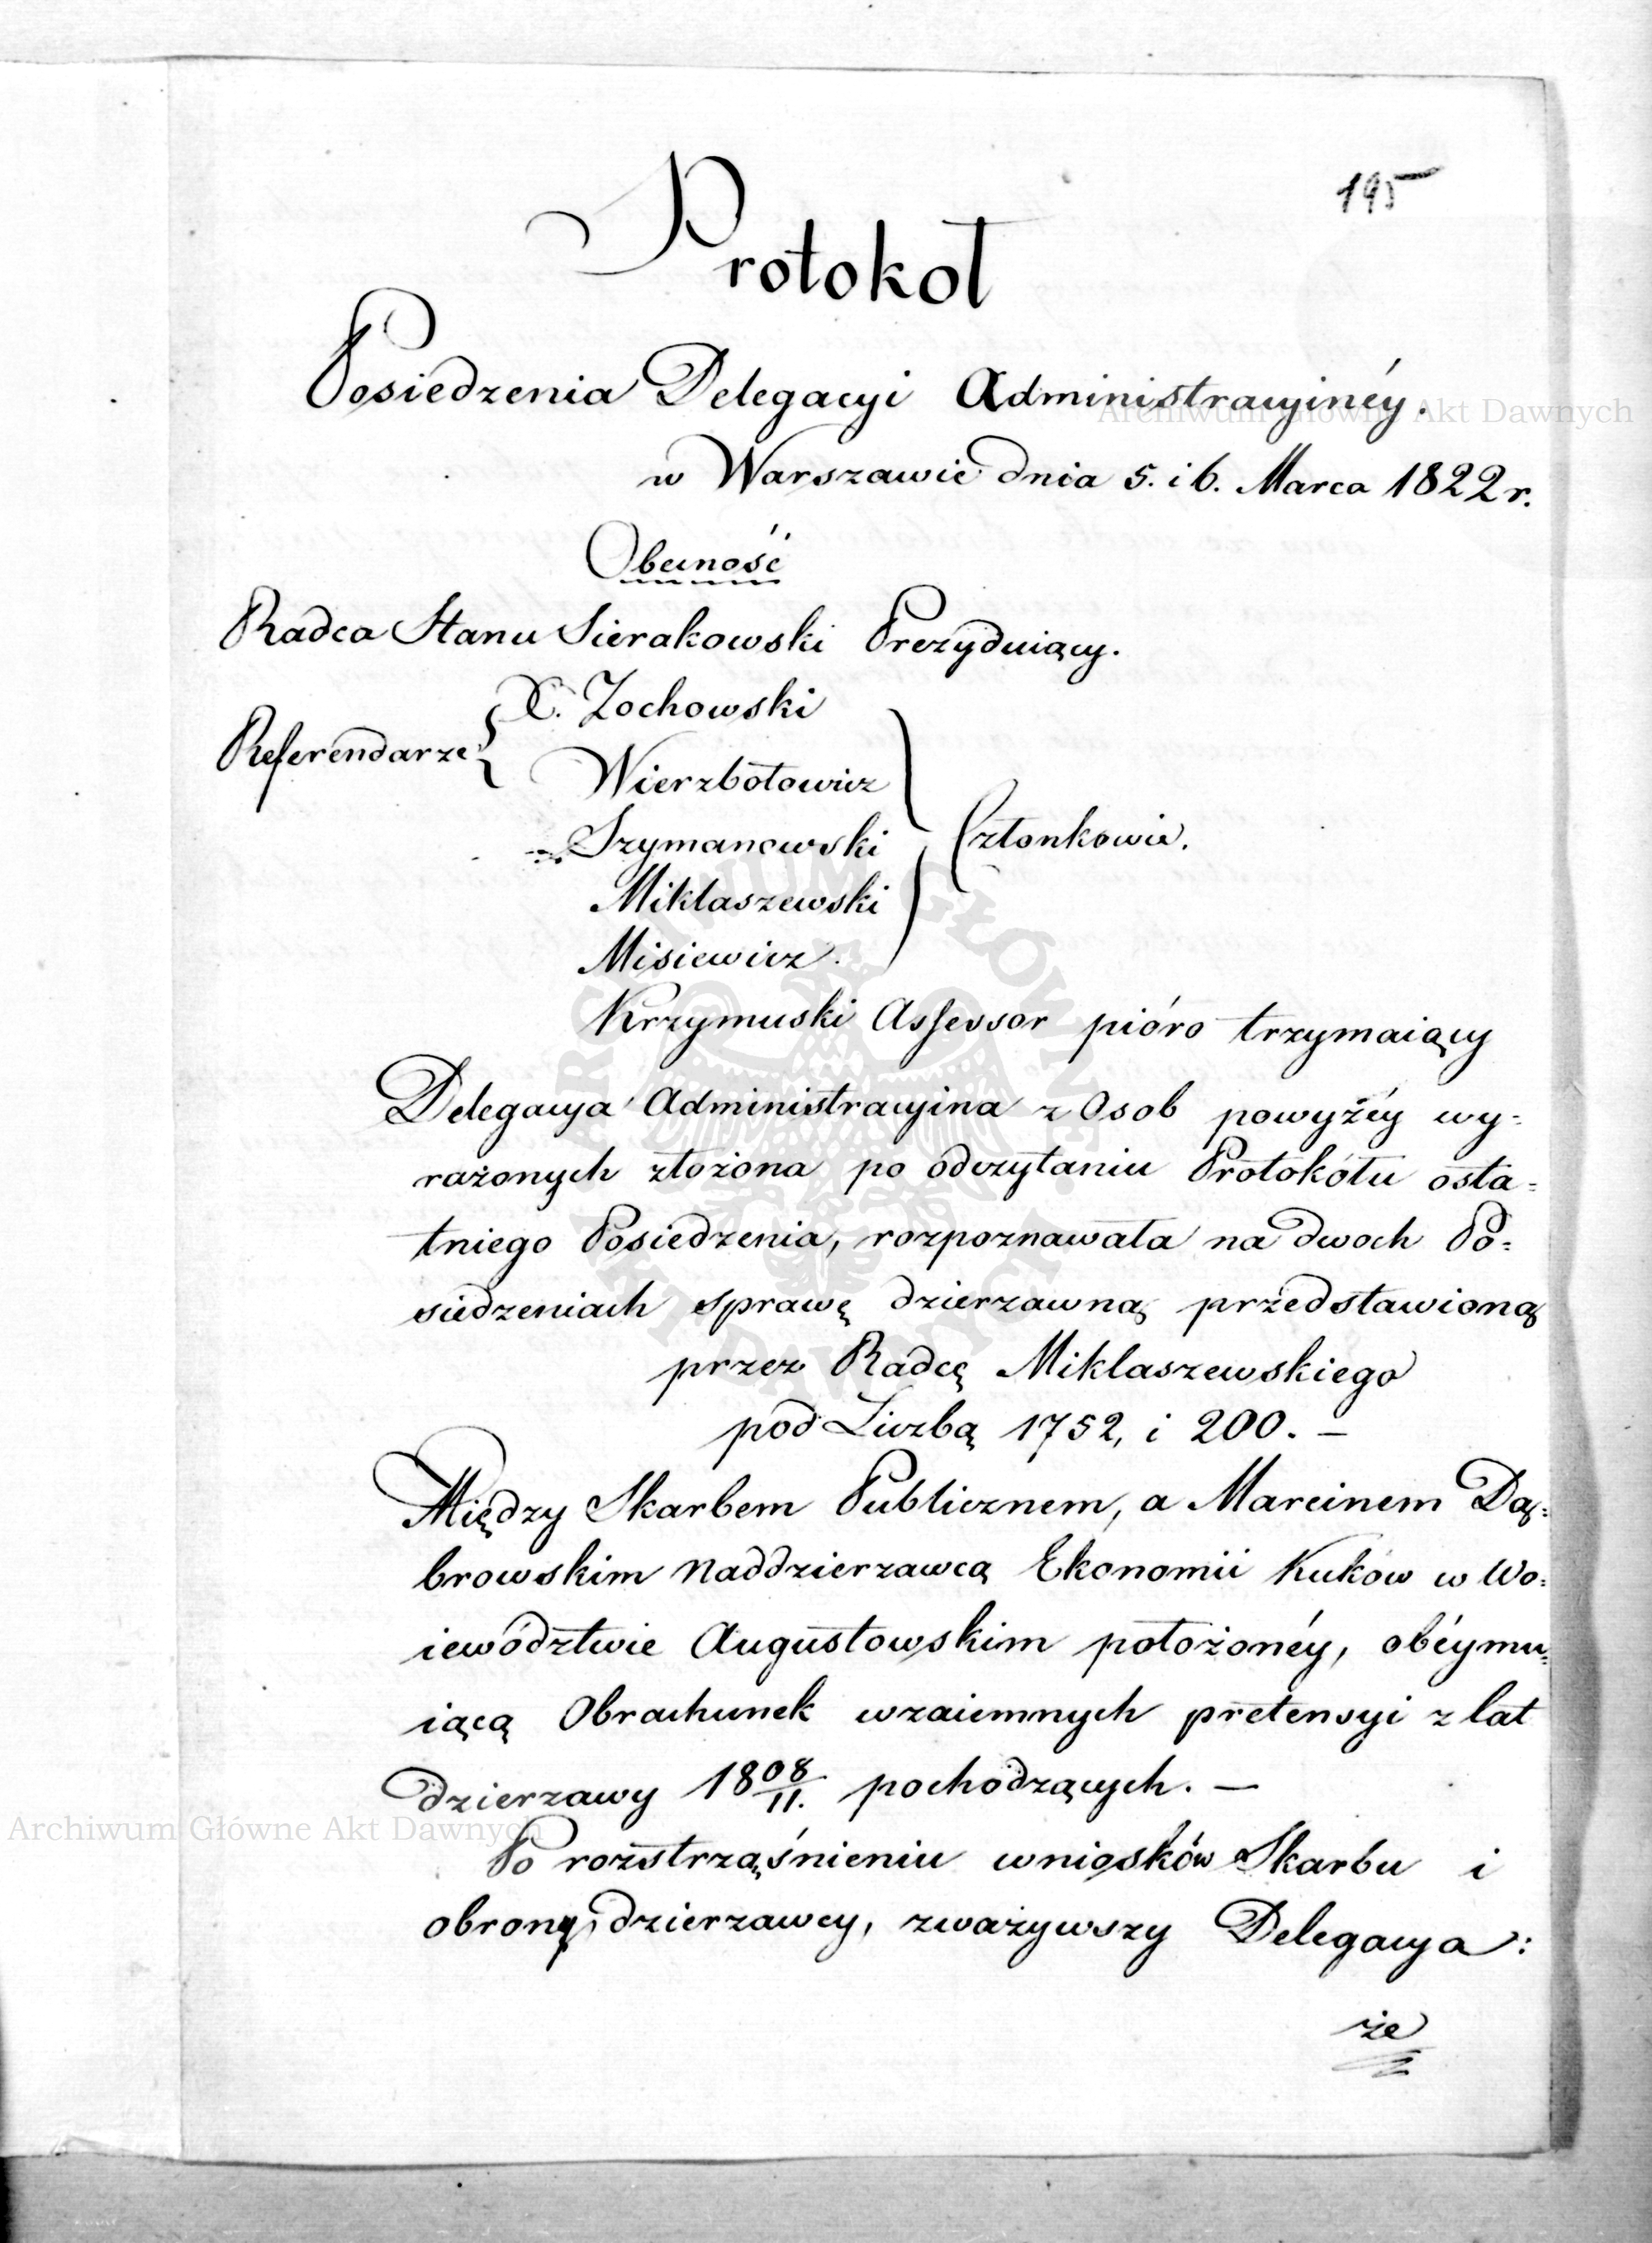 195
Protokoł
Posiedzenia Delegacyi Administracyinéy.
w Warszawie dnia 5. i 6. Marca 1822 r.
Obecność
Radca Stanu Sierakowski Prezyduiący.
X. Zochowski
Referendarze
Wierzbołowicz
Szymanowski
Członkowie.
Miklaszewski
Misiewicz.
Krzymuski Assessor pióro trzymaiący
Delegacya Administracyina z Osob powyżéy wy=
rażonych złożona po odczytaniu Protokółu osta=
tniego Posiedzenia, rozpoznawała na dwoch Po=
siedzeniach sprawę dzierzawną przedstawioną
przez Radcę Miklaszewskiego
pod Liczbą 1752, i 200. —
Między Skarbem Publicznem, a Marcinem Dą=
browskim Naddzierzawcą Ekonomii Kuków w Wo=
iewództwie Augustowskim położonéy, obéymu=
iącą Obrachunek wzaiemnych pretensyi z lat
dzierzawy 1808/11. pochodzących. —
Po roztrząśnieniu wniosków Skarbu i
obrony dzierzawcy, zważywszy Delegacya:
że
Archiwum Główne Akt Dawnych
Archiwum Główne Akt Dawnych
ARCHIWUM GŁÓWNE AKT DAWNYCH